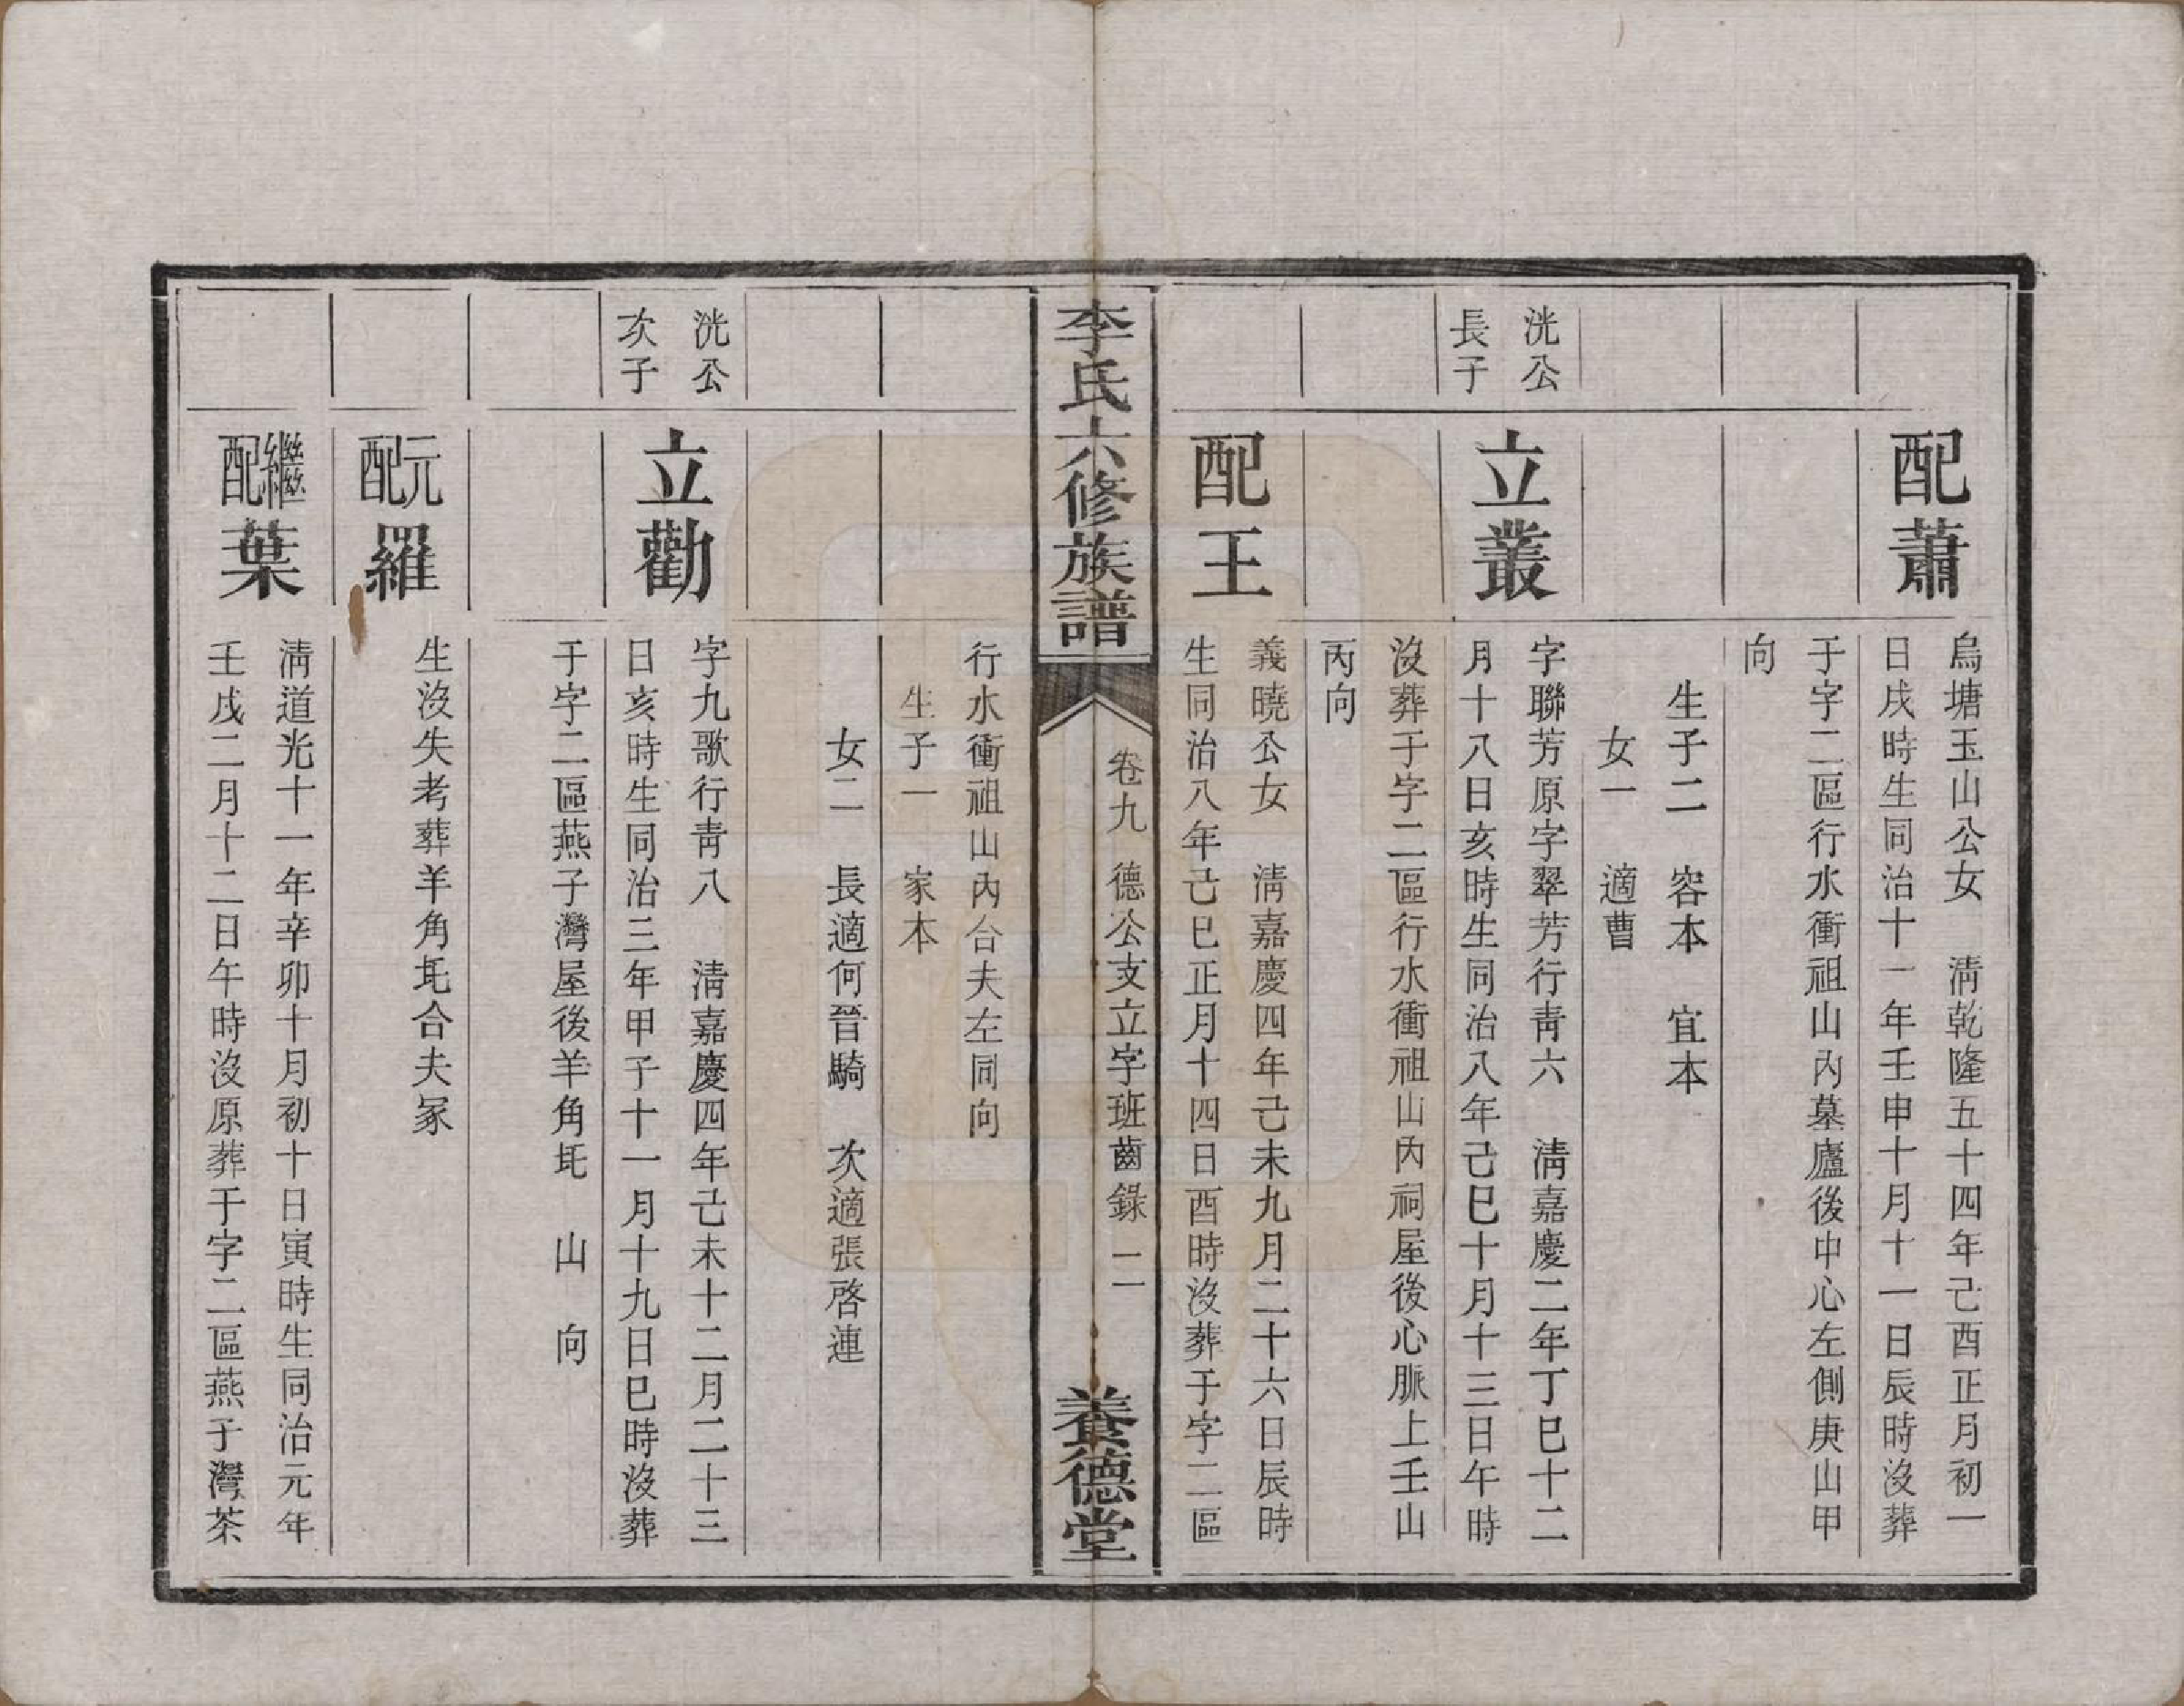 配蕭
烏塘玉山公女　淸乾隆五十四年己酉正月初一
日戌時生同治十一年壬申十月十一日辰時沒葬
于字二區行水衝祖山內墓廬後中心左側庚山甲
向
生子二　容本　宜本
女一　適曹
洸公
長子
立叢
字聯芳原字翠芳行靑六　淸嘉慶二年丁巳十二
月十八日亥時生同治八年己巳十月十三日午時
沒葬于字二區行水衝祖山內祠屋後心脈上壬山
丙向
配王
義曉公女　淸嘉慶四年己未九月二十六日辰時
生同治八年己巳正月十四日酉時沒葬于字二區
李氏六修族譜
卷九　德公支立字班齒錄　二
養德堂
行水衝祖山內合夫左同向
生子一　家本
女二　長適何晉騎　次適張啓連
洸公
次子
立勸
字九歌行靑八　淸嘉慶四年己未十二月二十三
日亥時生同治三年甲子十一月十九日巳時沒葬
于字二區燕子灣屋後羊角坉　山　向
元配羅
生沒失考葬羊角坉合夫冢
繼配葉
淸道光十一年辛卯十月初十日寅時生同治元年
壬戌二月十二日午時沒原葬于字二區燕子灣茶